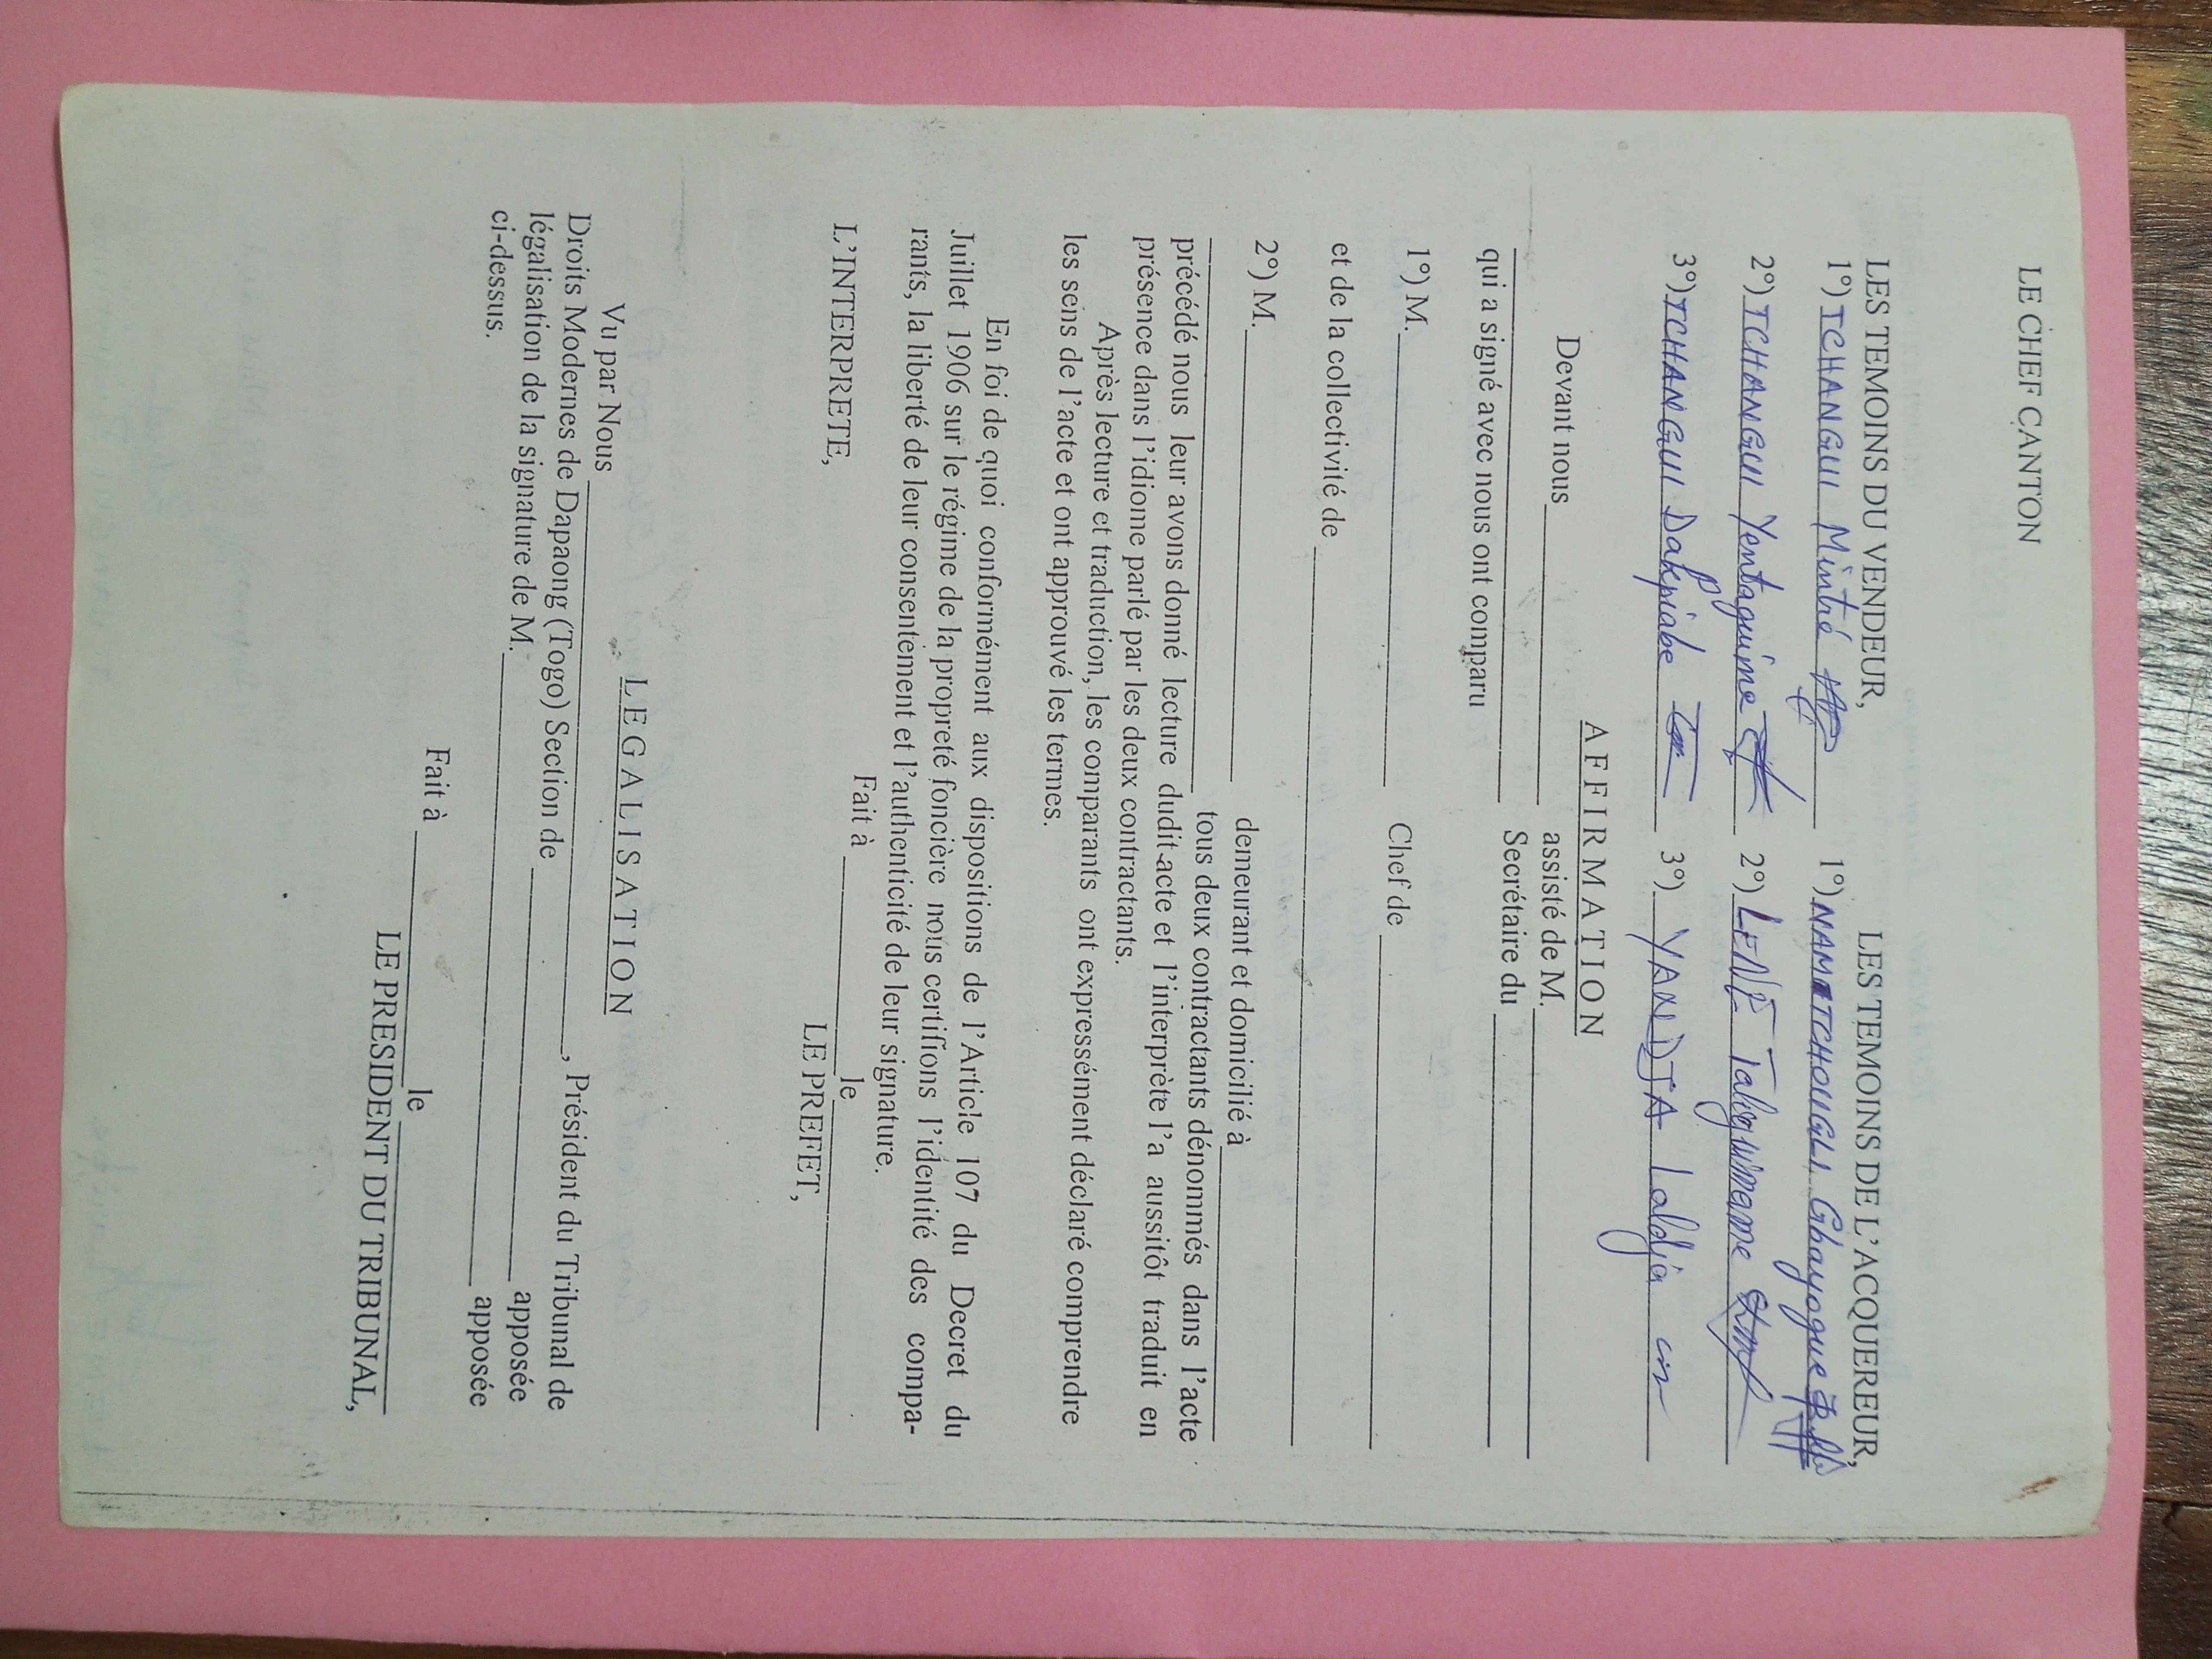 LE CHEF CANTON
LES TEMOINS DU VENDEUR, LES TEMOINS DE L'ACQUEREUR,
1°) TCHANGUI Mintié 1°) NAMATCHOUGLI Gbayogue
2°) TCHANGUI Yentaguime 2°) LENE Taliguimame
3°) TCHANGUI Dakpiabe 3°) YANDJA Laldja
AFFIRMATION
Devant nous assisté de M.
Secrétaire du
qui a signé avec nous ont comparu
1°) M. Chef de
et de la collectivité de
2°) M. demeurant et domicilié à
tous deux contractants dénommés dans l'acte
précédé nous leur avons donné lecture dudit acte et l'interprète l'a aussitôt traduit en
présence dans l'idiome parlé par les deux contractants.
Après lecture et traduction, les comparants ont expressément déclaré comprendre
les sens de l'acte et ont approuvé les termes.
En foi de quoi conformément aux dispositions de l'Article 107 du Decret du
Juillet 1906 sur le régime de la propreté foncière nous certifions l'identité des compa-
rants, la liberté de leur consentement et l'authenticité de leur signature.
Fait à le
L'INTERPRETE, LE PREFET,
LEGALISATION
Vu par Nous , Président du Tribunal de
Droits Modernes de Dapaong (Togo) Section de apposée
légalisation de la signature de M. apposée
ci-dessus.
Fait à le
LE PRESIDENT DU TRIBUNAL,